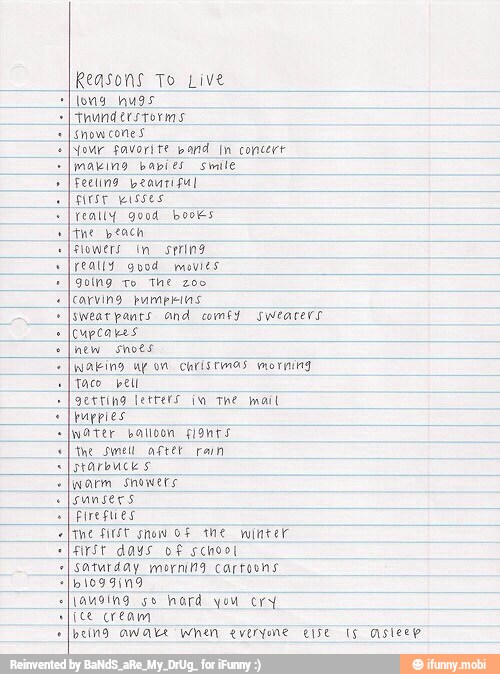 Reasons To Live
• long hugs
• thunderstorms
• snowcones
• your favorite band in concert
• making babies smile
• feeling beautiful
• first kisses
• really good books
• the beach
• flowers in spring
• really good movies
• going to the zoo
• carving pumpkins
• sweatpants and comfy sweaters
• cupcakes
• new shoes
• waking up on christmas morning
• taco bell
• getting letters in the mail
• puppies
• water balloon fights
• the smell after rain
• starbucks
• warm showers
• sunsets
• fireflies
• the first snow of the winter
• first days of school
• saturday morning cartoons
• blogging
• lauging so hard you cry
• ice cream
• being awake when everyone else is asleep
Reinvented by BaNdS_aRe_My_DrUg_ for iFunny :)
ifunny.mobi